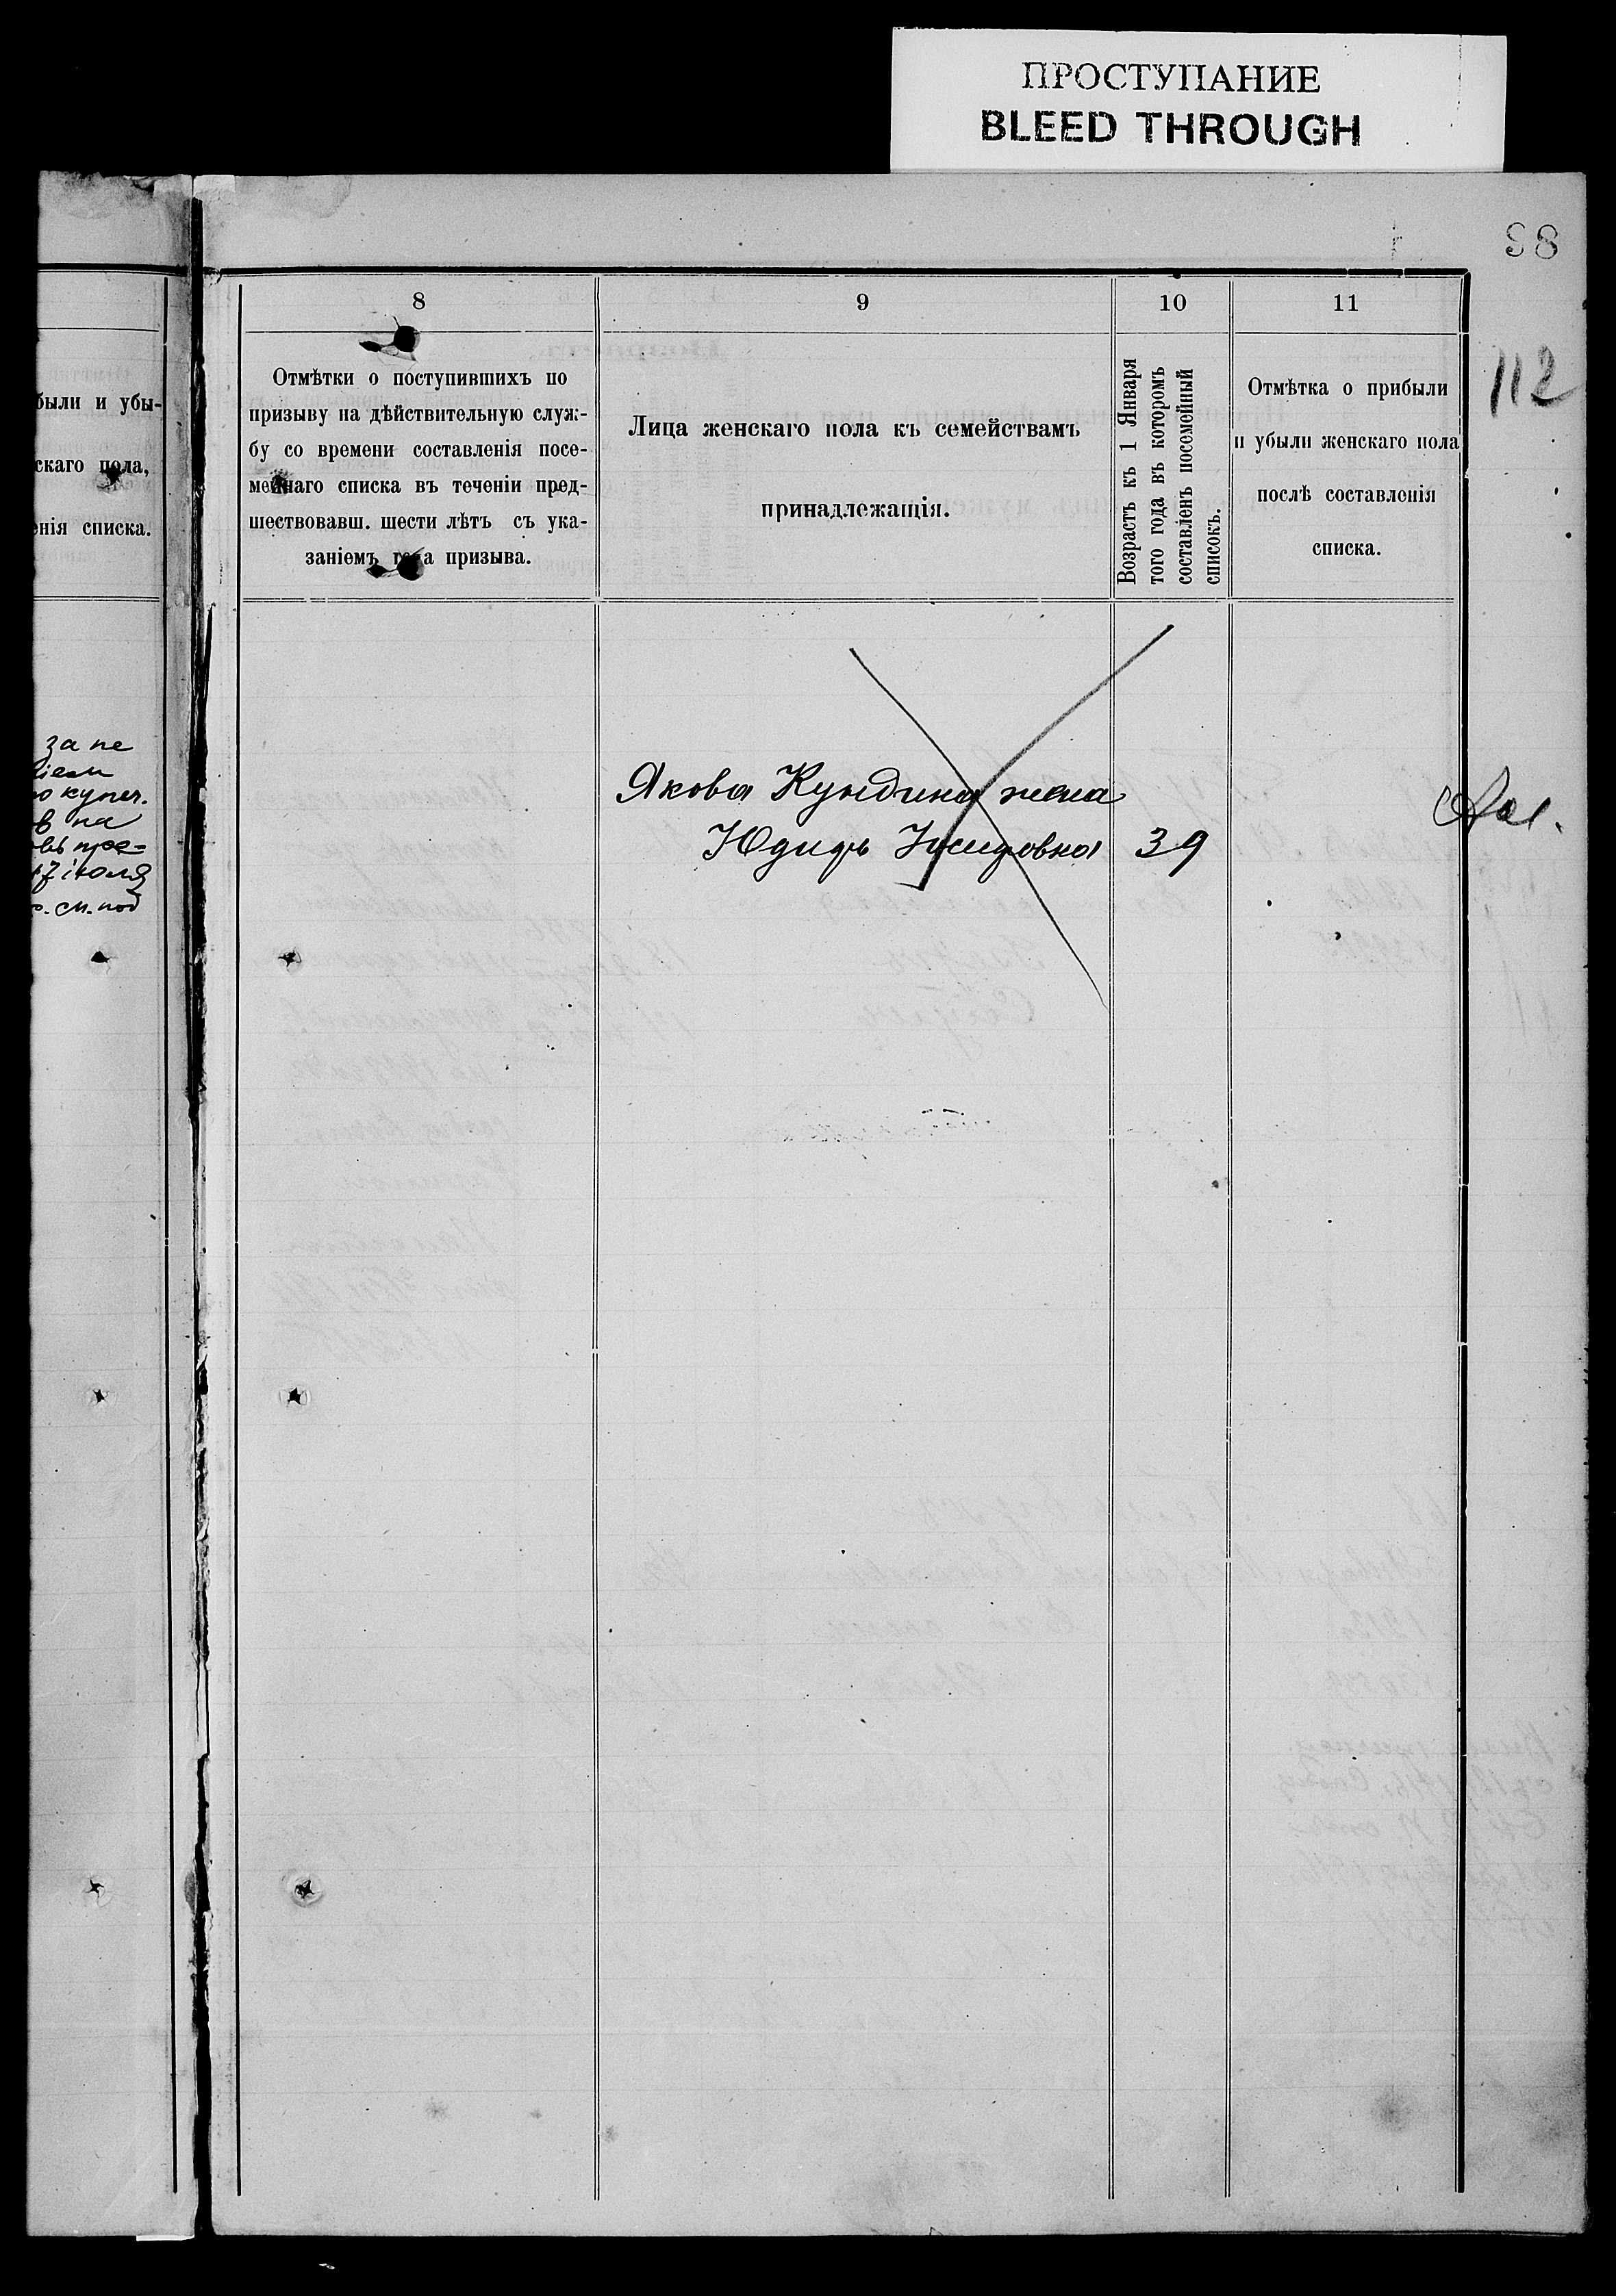 ПРОСТУПАНИЕ
BLEED THROUGH
98
112
были и убы-
скаго пола,
енія списка.
за не
купеч.
в на
іюля
см. под
8
Отмѣтки о поступившихъ по
призыву на дѣйствительную служ-
бу со времени составленія посе-
мейнаго списка въ теченіи пред-
шествовавш. шести лѣтъ съ ука-
заніемъ года призыва.
9
Лица женскаго пола къ семействамъ
принадлежащія.
10
Возрастъ къ 1 Января
того года въ которомъ
составленъ посемейный
списокъ.
11
Отмѣтка о прибыли
и убыли женскаго пола
послѣ составленія
списка.
Якова Кундина жена
Юдифь 39